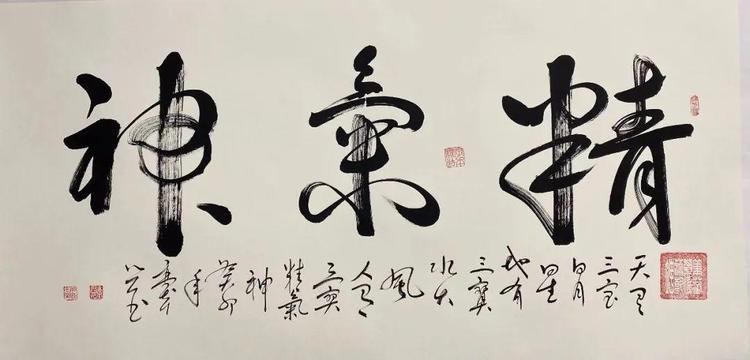 精氣神
天有
三宝
日月
星
地有
三寶
水火
風
人有
三寶
精氣
神
癸卯
年